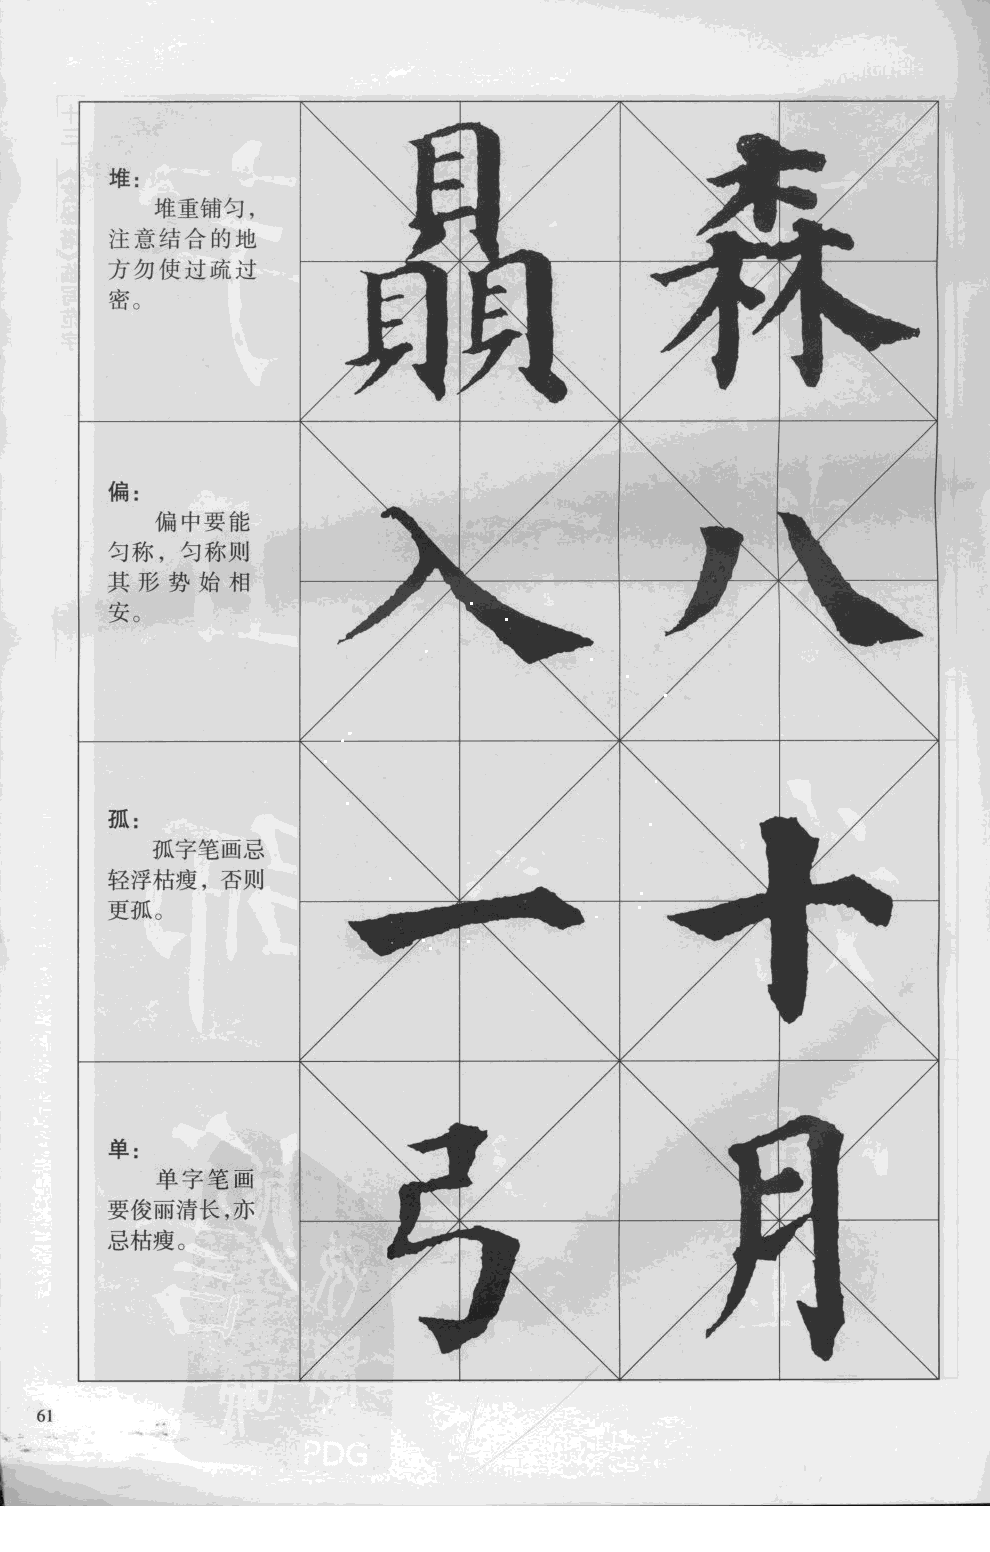 堆：
堆重铺匀，
注意结合的地
方勿使过疏过
密。
贔 森
偏：
偏中要能
匀称，匀称则
其形势始相
安。
入 八
孤：
孤字笔画忌
轻浮枯瘦，否则
更孤。
一 十
单：
单字笔画
要俊丽清长，亦
忌枯瘦。
弓 月
61
PDG